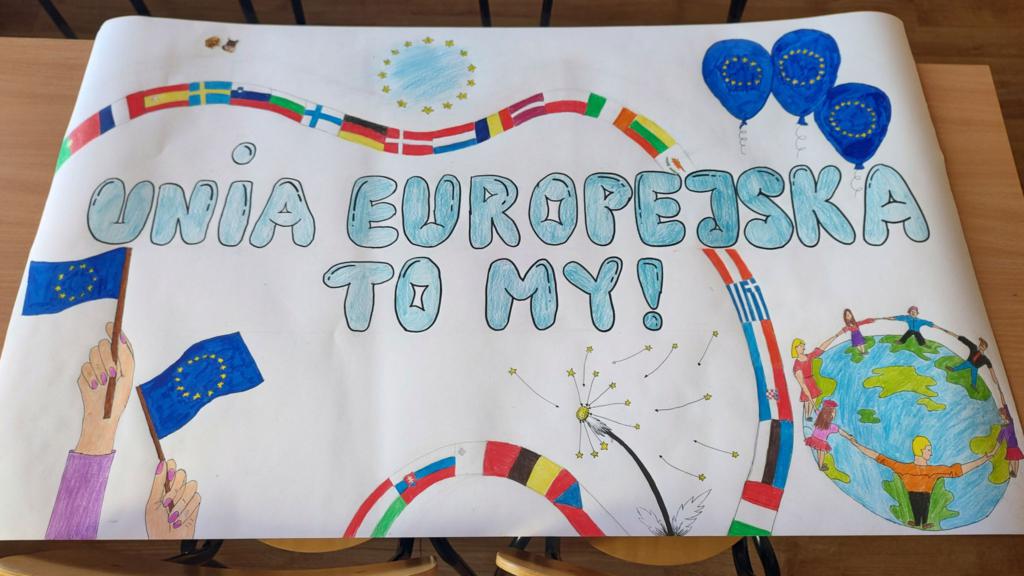 UNIA EUROPEJSKA
TO MY!